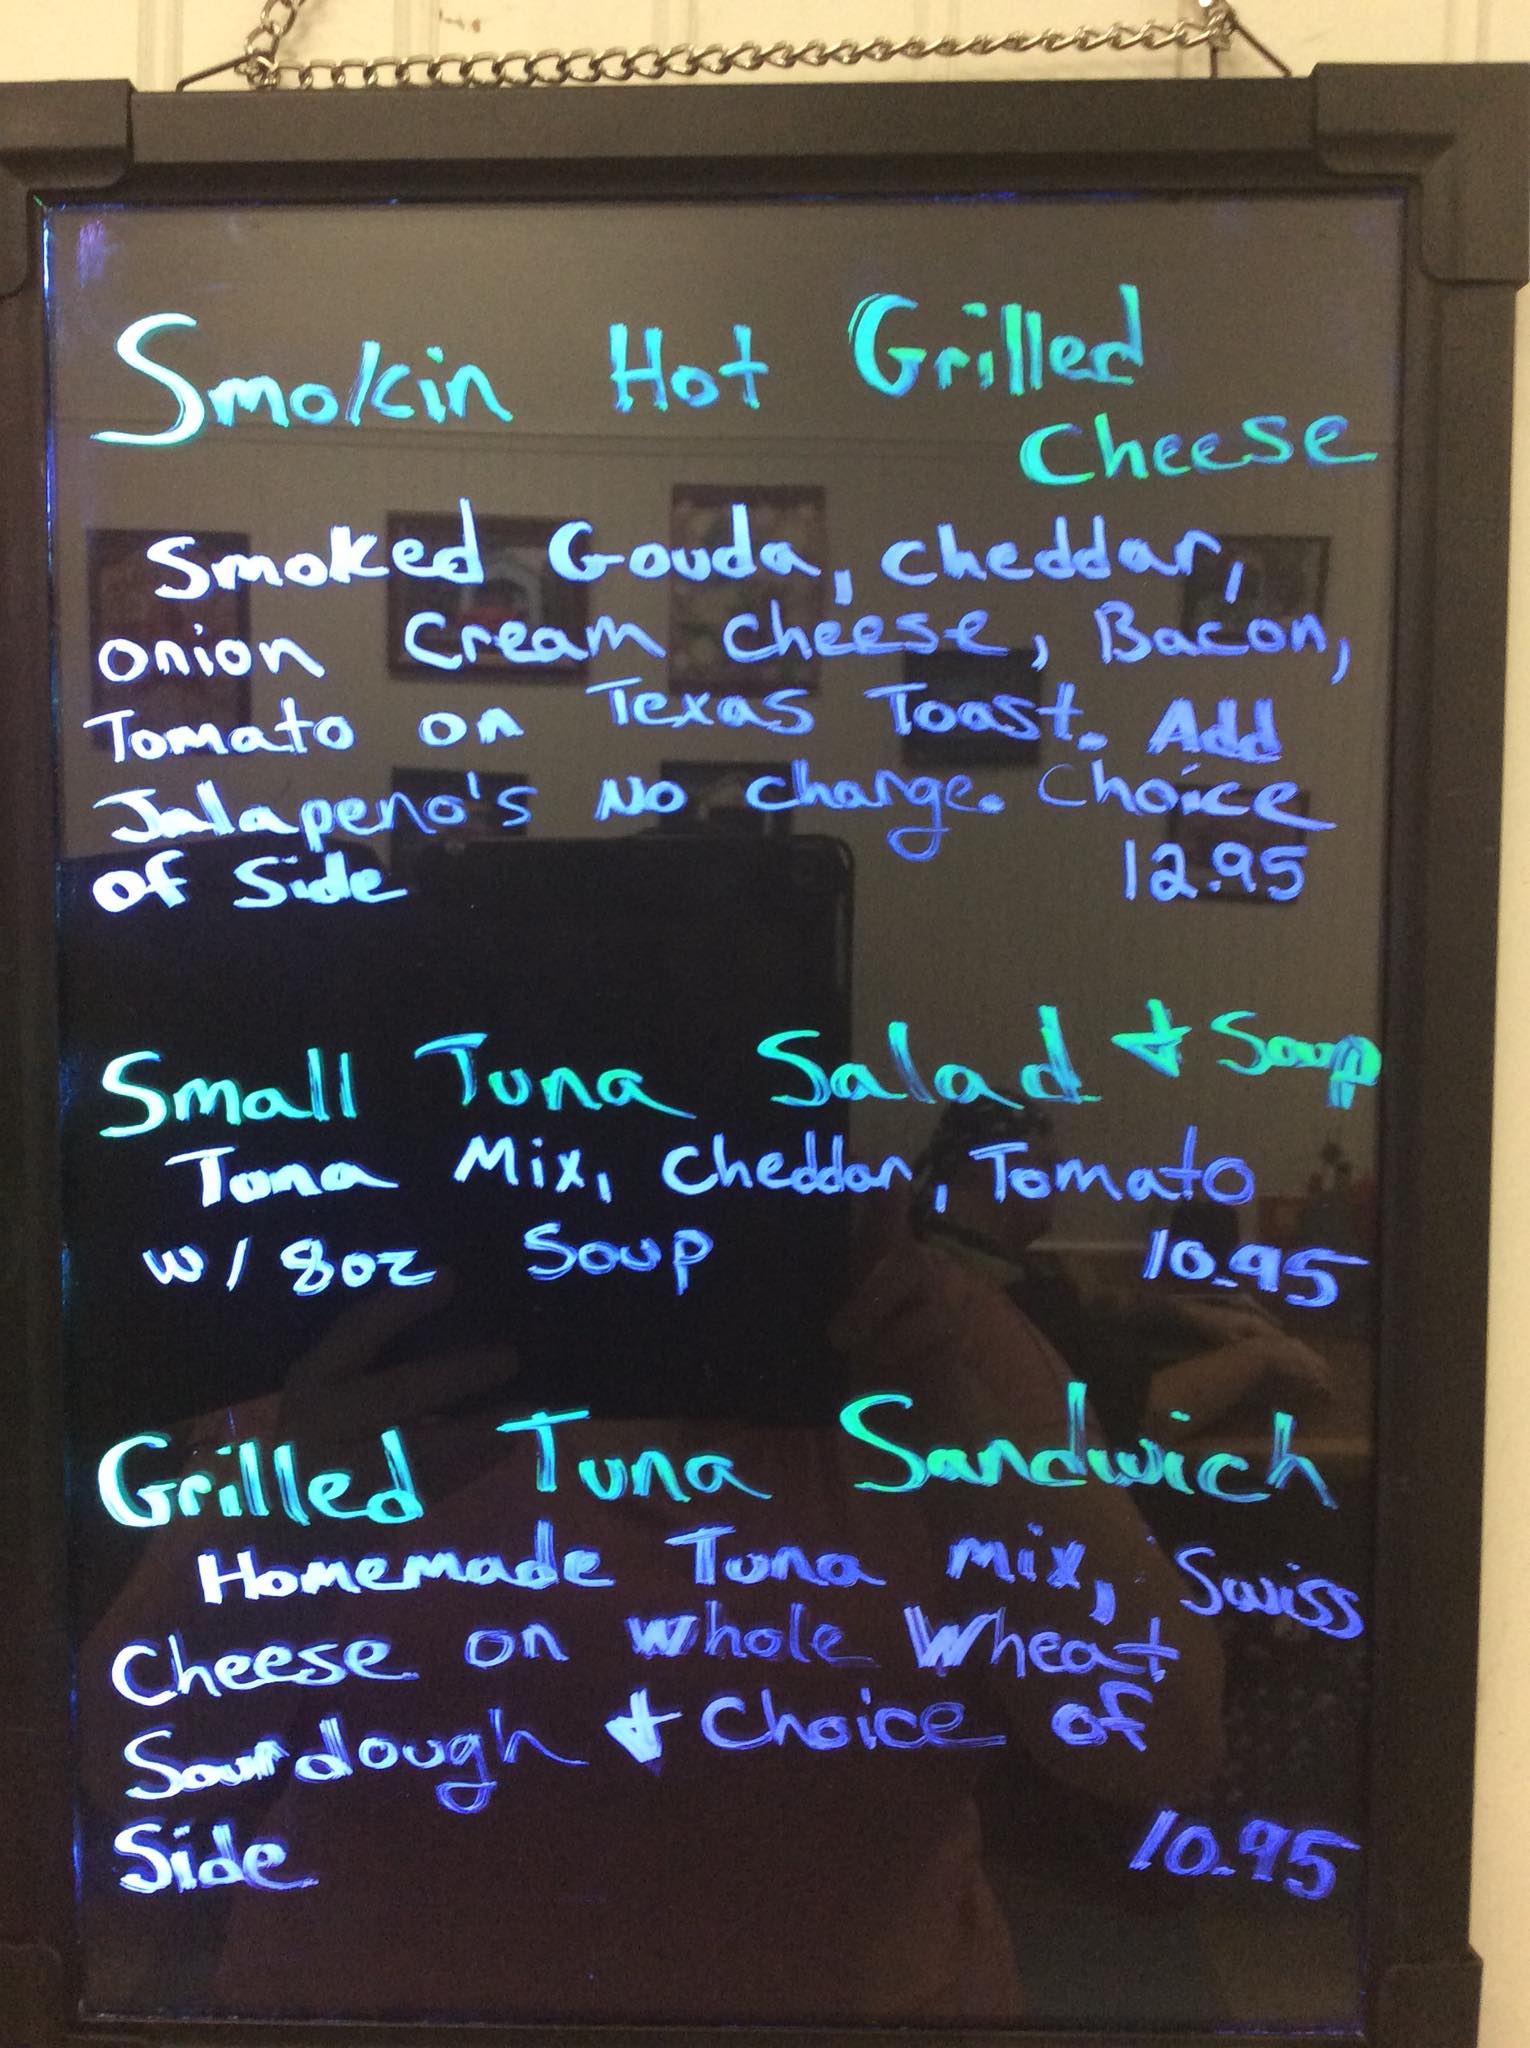 Smokin Hot Grilled
Cheese
Smoked Gouda, cheddar,
onion cream cheese, Bacon,
Tomato on Texas Toast. Add
Jalapeno's No change. Choice
of Side 12.95
Small Tuna Salad & Soup
Tuna Mix, Cheddar, Tomato
w/ 8oz Soup 10.95
Grilled Tuna Sandwich
Homemade Tuna mix, Swiss
Cheese on whole Wheat
Sourdough & Choice of
Side 10.95